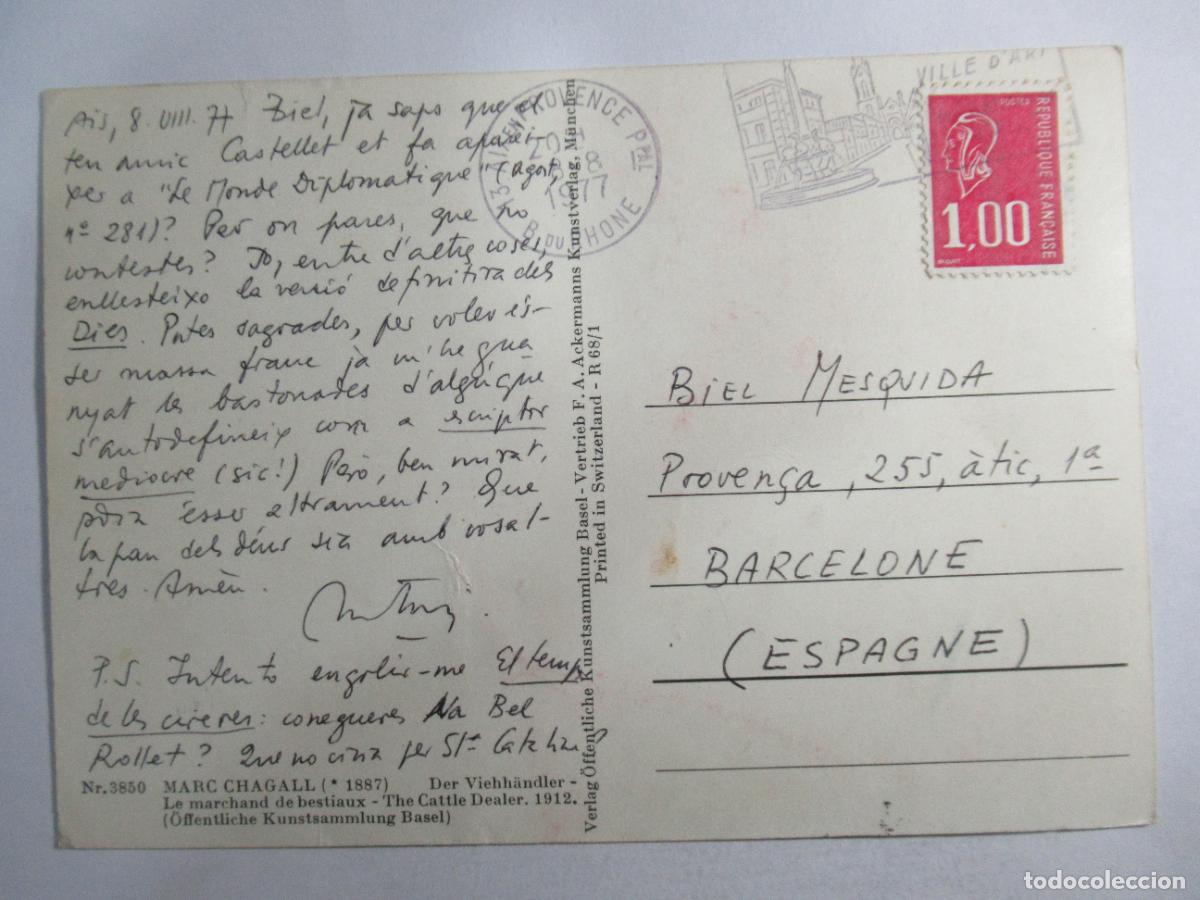 Ais, 8. VIII. 77 Biel, ja saps que el
teu amic Castellet et fa aparèi-
xer a "Le Monde Diplomatique" (agost,
nº 281)? Per on pares, que no
contestes? Jo, entre d'altres coses,
enllesteixo la versió definitiva dels
Dies. Putes sagrades, per voler és-
ser massa franc ja m'he gua
nyat les bastonades d'algú que
s'autodefineix com a escriptor
mediocre (sic!) Però, ben mirat,
podia ésser altrament? Que
la pau dels déus sia amb vosal-
tres. Amèn.
P.S. Intento engolir-me El temps
de les cireres: conegueres Na Bel
Rollet? Que no cria per Sta Catalina?
Nr. 3850 MARC CHAGALL (* 1887) Der Viehhändler -
Le marchand de bestiaux - The Cattle Dealer. 1912.
(Öffentliche Kunstsammlung Basel)
Verlag Öffentliche Kunstsammlung Basel - Vertrieb F. A. Ackermanns Kunstverlag, München
Printed in Switzerland - R 68/1
AIX EN PROVENCE Ppal
1977
B. DU RHONE
VILLE D'ART
POSTES
REPUBLIQUE FRANÇAISE
1,00
BIEL MESQUIDA
PROVENÇA, 255, àtic, 1ª
BARCELONE
(ESPAGNE)
todocoleccion